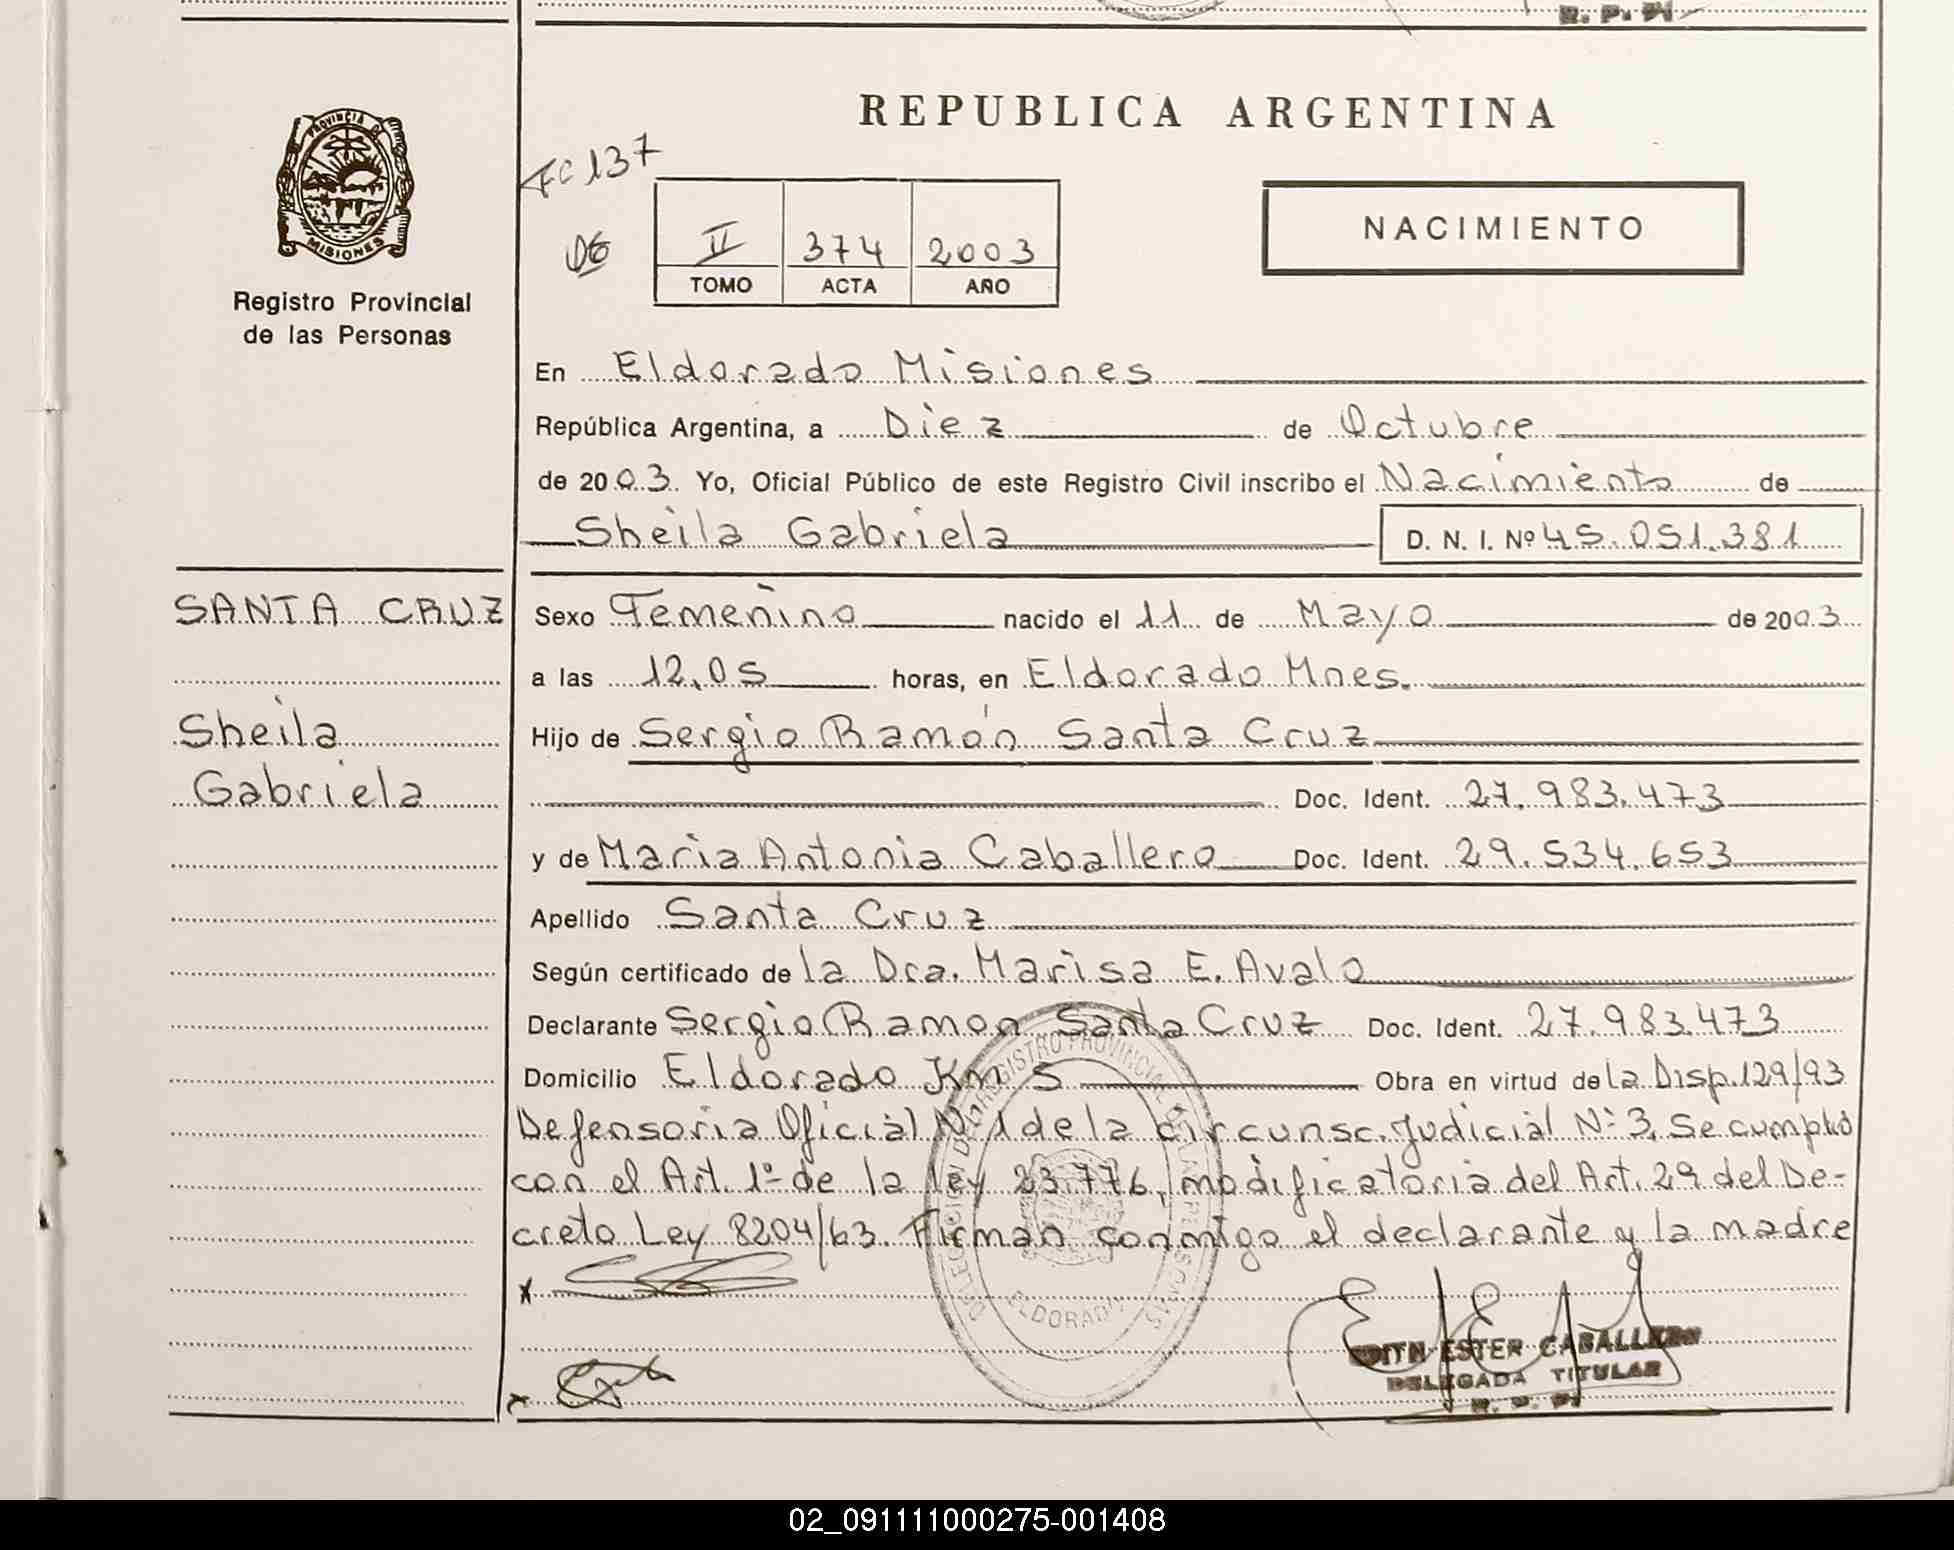 R. P. P.
REPUBLICA ARGENTINA
PROVINCIA DE
MISIONES
Registro Provincial
de las Personas
137
06
II 374 2003
TOMO ACTA AÑO
NACIMIENTO
En Eldorado Misiones
República Argentina, a Diez de Octubre
de 2003. Yo, Oficial Público de este Registro Civil inscribo el Nacimiento de
Sheila Gabriela D. N. I. Nº 45.051.381
SANTA CRUZ
Sheila
Gabriela
Sexo Femenino nacido el 11 de Mayo de 2003
a las 12,05 horas, en Eldorado Mnes.
Hijo de Sergio Ramón Santa Cruz
Doc. Ident. 27.983.473
y de Maria Antonia Caballero Doc. Ident. 29.534.653
Apellido Santa Cruz
Según certificado de la Dra. Marisa E. Avalo
Declarante Sergio Ramon Santa Cruz Doc. Ident. 27.983.473
Domicilio Eldorado Km 5 Obra en virtud de la Disp. 129/93
Defensoria Oficial Nº 1 de la circunsc. Judicial Nº 3. Se cumplió
con el Art. 1º de la ley 23.776, modificatoria del Art. 29 del De-
creto Ley 8204/63. Firman conmigo el declarante y la madre
DELEGACION DEL REGISTRO PROVINCIAL DE LAS PERSONAS
ELDORADO
EDITH ESTER CABALLERO
DELEGADA TITULAR
R. P. P.
02_091111000275-001408